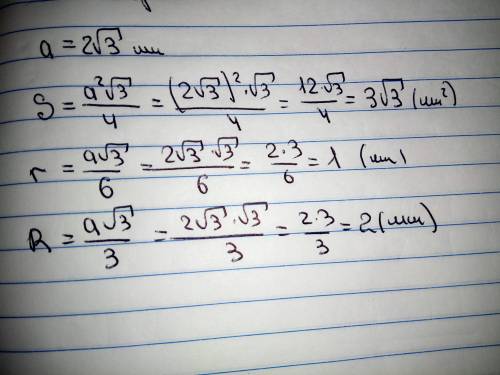 a = 2√3 мм
S = a²√3/4 = (2√3)²·√3/4 = 12·√3/4 = 3√3 (мм²)
r = a√3/6 = 2√3·√3/6 = 2·3/6 = 1 (мм)
R = a√3/3 = 2√3·√3/3 = 2·3/3 = 2 (мм)